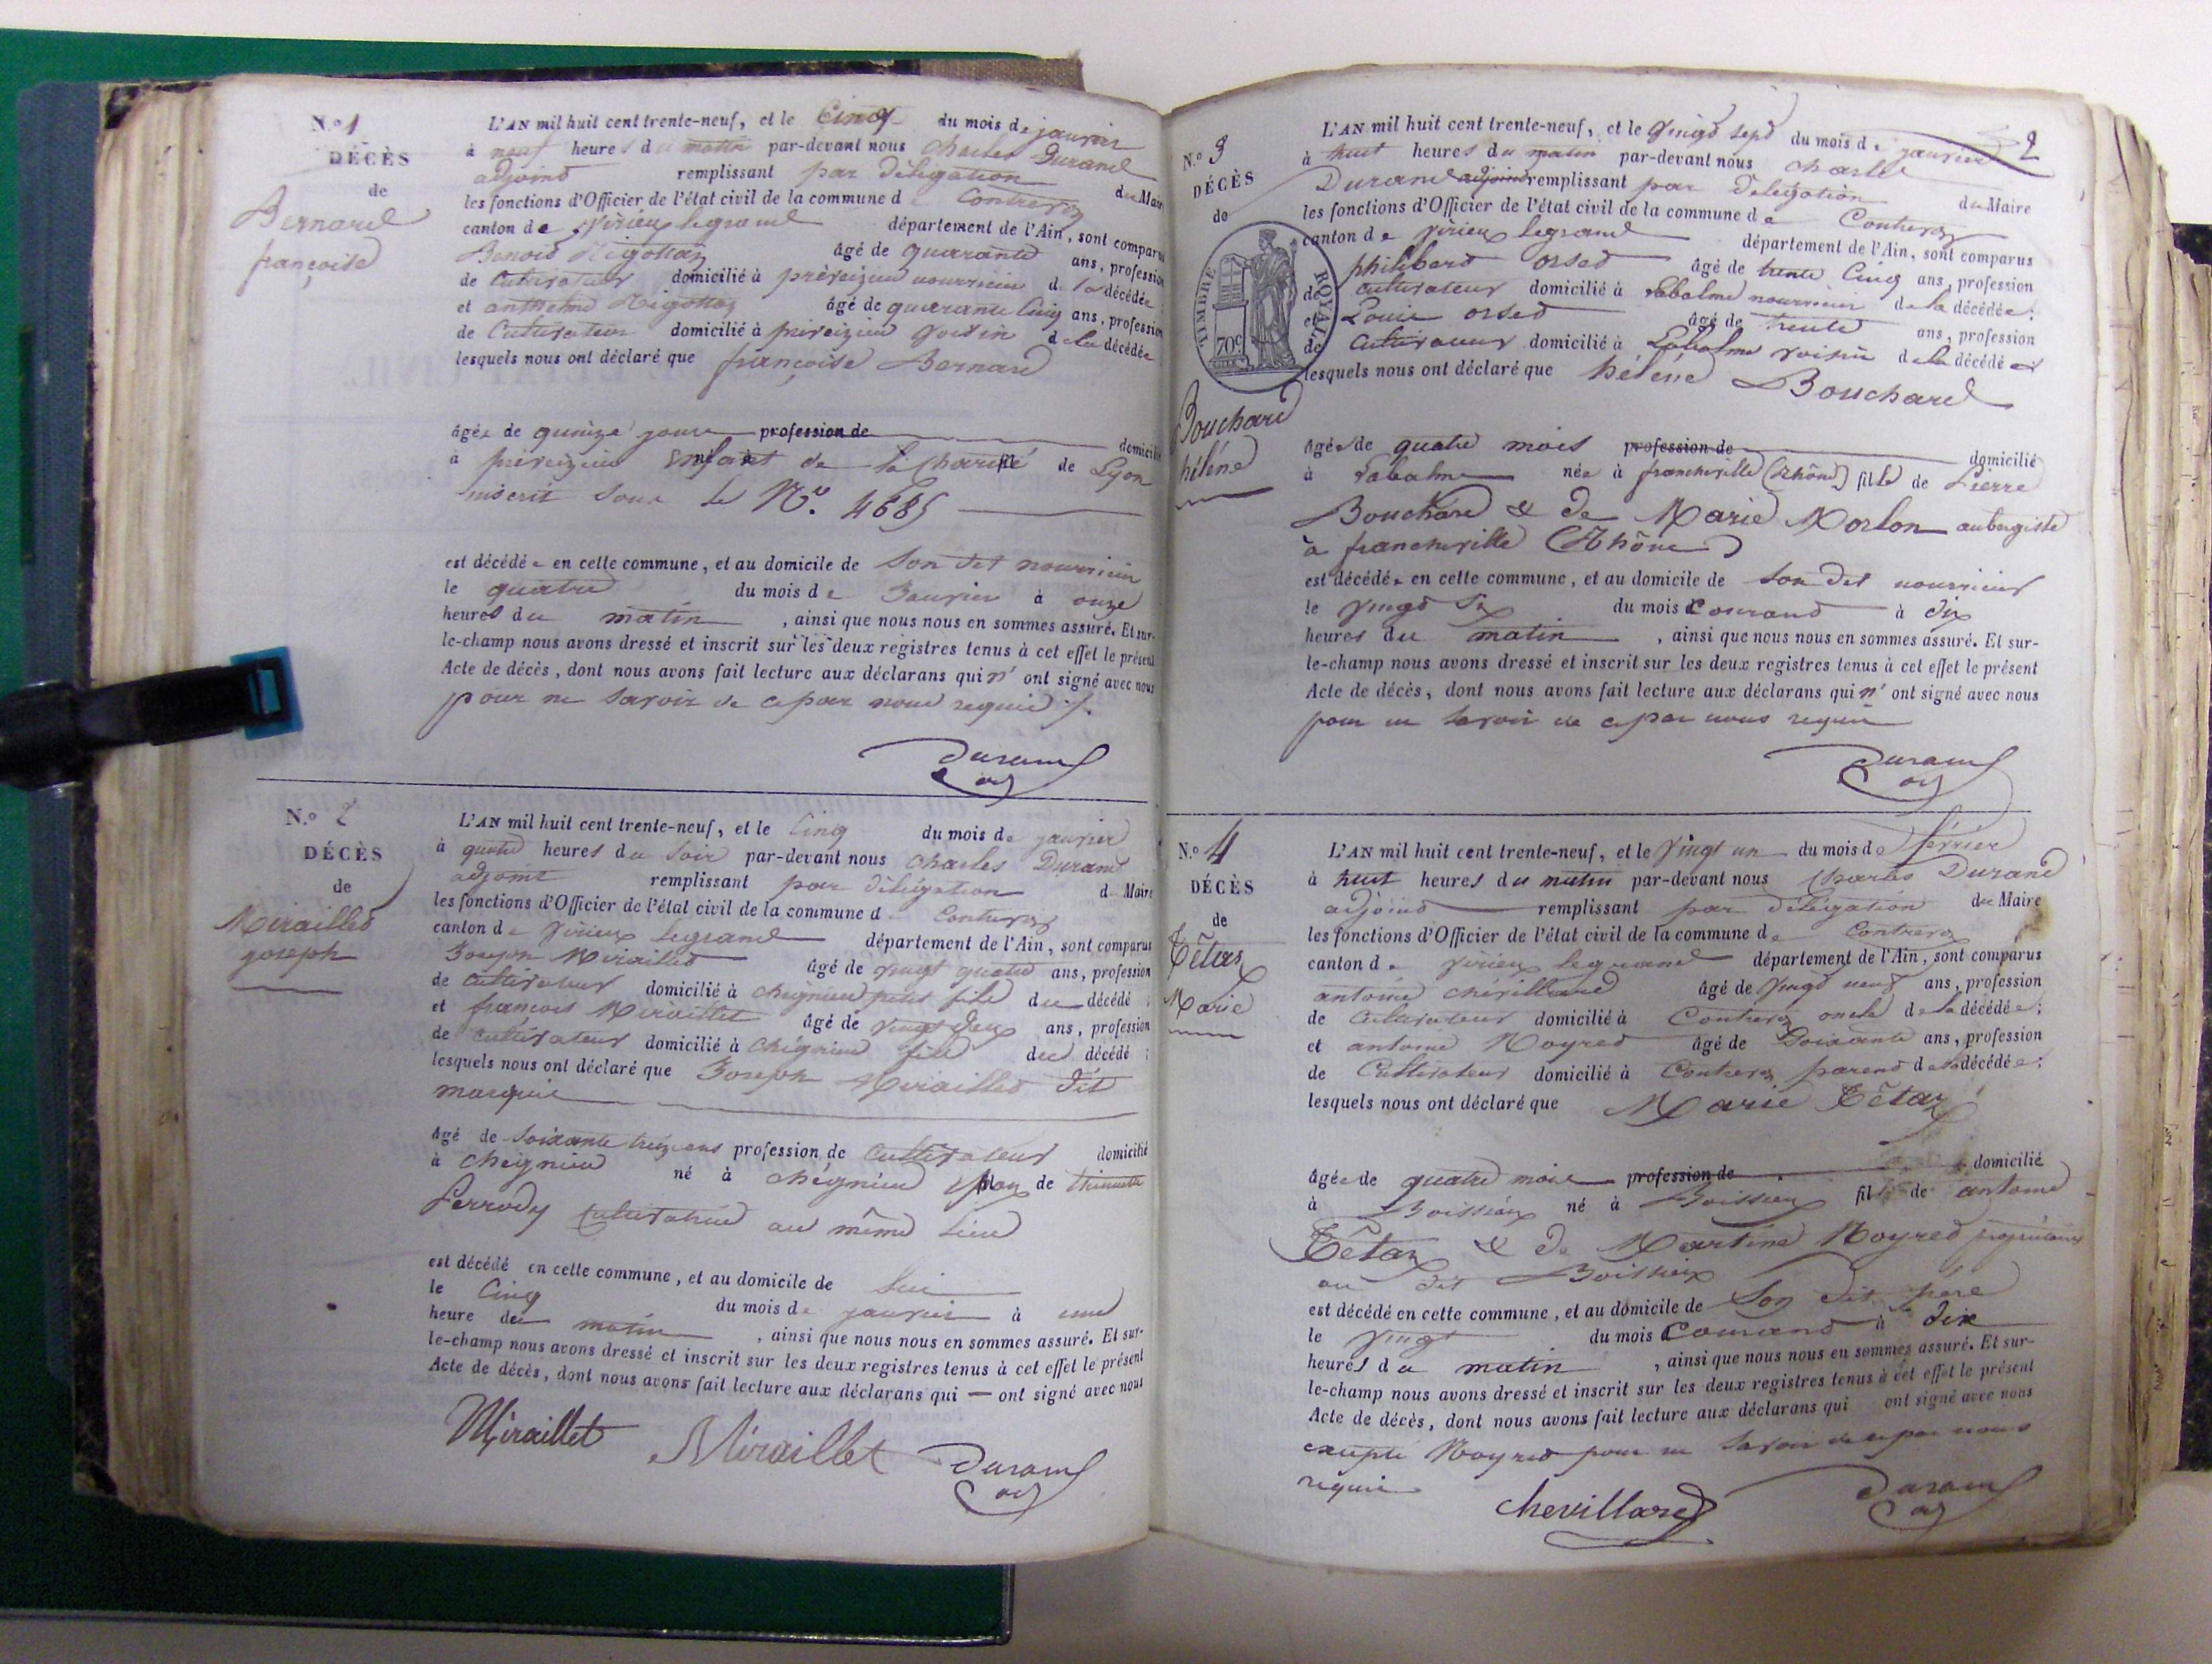 N.º 1
DÉCÈS
de
Bernard
françoise
L'AN mil huit cent trente-neuf, et le Cinq du mois de janvier
à neuf heures du matin par-devant nous Charles Durand
adjoint remplissant par délégation du Maire
les fonctions d'Officier de l'état civil de la commune de Contrevoz
canton de Virieu legrand département de l'Ain, sont comparus
Benoit Rigottaz âgé de quarante ans, profession
de Cultivateur domicilié à preveizieu nourricier de la décédée
et anthelme Rigottaz âgé de quarante Cinq ans, profession
de Cultivateur domicilié à preveizieu voisin de la décédée
lesquels nous ont déclaré que françoise Bernard
âgée de quinze jours profession de domicilié
à preveizieu Enfant de la Charité de Lyon
inscrit sous le Nº. 4685
est décédée en cette commune, et au domicile de Son dit nourricier
le quatre du mois de Janvier à onze
heures du matin, ainsi que nous nous en sommes assuré. Et sur-
le-champ nous avons dressé et inscrit sur les deux registres tenus à cet effet le présent
Acte de décès, dont nous avons fait lecture aux déclarans qui n' ont signé avec nous
pour ne savoir de ce par nous requis
Durand
adj
N.º 2
DÉCÈS
de
Miraillet
joseph
L'AN mil huit cent trente-neuf, et le Cinq du mois de janvier
à quatre heures du soir par-devant nous Charles Durand
adjoint remplissant par délégation d Maire
les fonctions d'Officier de l'état civil de la commune d Contrevoz
canton de Virieux legrand département de l'Ain, sont comparus
Joseph Miraillet âgé de vingt quatre ans, profession
de Cultivateur domicilié à Cheignieu petit fils du décédé ;
et francois Miraillet âgé de vingt deux ans, profession
de Cultivateur domicilié à Chégnieu fils du décédé ;
lesquels nous ont déclaré que Joseph Miraillet dit
marquis
âgé de Soixante treize ans profession de Cultivateur domicilié
à Cheignieu né à Chégnieu Epoux de thiennette
Perrody Cultivatrice au même lieu
est décédé en cette commune, et au domicile de lui
le Cinq du mois de janvier à une
heure du matin, ainsi que nous nous en sommes assuré. Et sur-
le-champ nous avons dressé et inscrit sur les deux registres tenus à cet effet le présent
Acte de décès, dont nous avons fait lecture aux déclarans qui — ont signé avec nous
Miraillet Miraillet Durand
adj
2
N.º 3
DÉCÈS
de
TIMBRE ROYAL
70c
Bouchard
hélène
L'AN mil huit cent trente-neuf, et le Vingt sept du mois de janvier
à huit heures du matin par-devant nous Charles
Durand adjoint remplissant par délégation du Maire
les fonctions d'Officier de l'état civil de la commune de Contrevoz
canton de Virieux legrand département de l'Ain, sont comparus
philibert orset âgé de trente Cinq ans, profession
de Cultivateur domicilié à Labalme nourricier de la décédée ;
et Louis orset âgé de trente ans, profession
de Cultivateur domicilié à Labalme voisin de la décédée
lesquels nous ont déclaré que hélène Bouchard
âgée de quatre mois profession de domicilié
à Labalme née à francheville (Rhône) fille de Pierre
Bouchard & de Marie Morlon aubergiste
à francheville (Rhône)
est décédée en cette commune, et au domicile de son dit nourricier
le Vingt Six du mois Courant à dix
heures du matin, ainsi que nous nous en sommes assuré. Et sur-
le-champ nous avons dressé et inscrit sur les deux registres tenus à cet effet le présent
Acte de décès, dont nous avons fait lecture aux déclarans qui n' ont signé avec nous
pour ne savoir de ce par nous requis
Durand
adj
N.º 4
DÉCÈS
de
Têtaz
Marie
L'AN mil huit cent trente-neuf, et le Vingt un du mois de février
à huit heures du matin par-devant nous Charles Durand
adjoint remplissant par délégation du Maire
les fonctions d'Officier de l'état civil de la commune de Contrevoz
canton de Virieu legrand département de l'Ain, sont comparus
antoine chévillard âgé de Vingt neuf ans, profession
de Cultivateur domicilié à Contrevoz oncle de la décédée ;
et antoine Noyret âgé de Soixante ans, profession
de Cultivateur domicilié à Contrevoz parent de la décédée ;
lesquels nous ont déclaré que Marie Têtaz
âgée de quatre mois profession de domicilié
à Boissieux né à Boissieux fil de antoine
Têtaz & de Martine Noyret propriétaires
au dit Boissieux
est décédé en cette commune, et au domicile de Son dit père
le Vingt du mois Courant à dix
heures du matin, ainsi que nous nous en sommes assuré. Et sur-
le-champ nous avons dressé et inscrit sur les deux registres tenus à cet effet le présent
Acte de décès, dont nous avons fait lecture aux déclarans qui ont signé avec nous
excepté Noyret pour ne savoir de ce par nous
requis
chevillard Durand
adj